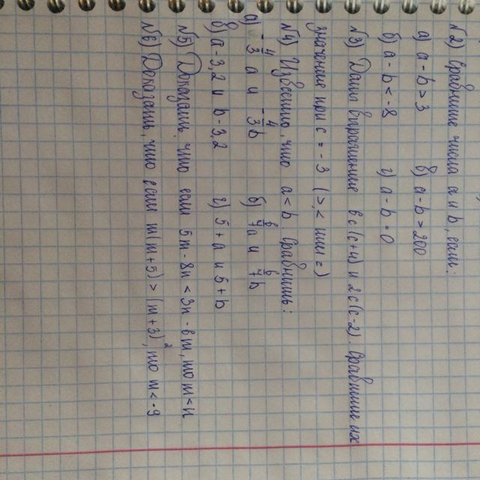 №2) Сравните числа a и b, если:
а) a-b>3 в) a-b>200
б) a-b<-8 г) a-b=0
№3) Даны выражение 8c(c+4) и 2c(c-2). Сравните их
значения при c=-3 (>,< или =)
№4) Известно, что a<b Сравнить:
а) -4/3 a и -4/3 b б) 6/7 a и 6/7 b
в) a-3,2 и b-3,2 г) 5+a и 5+b
№5) Доказать, что если 5m-8n<3n-6m, то m<n
№6) Доказать, что если m(m+5)>(m+3)², то m<-9